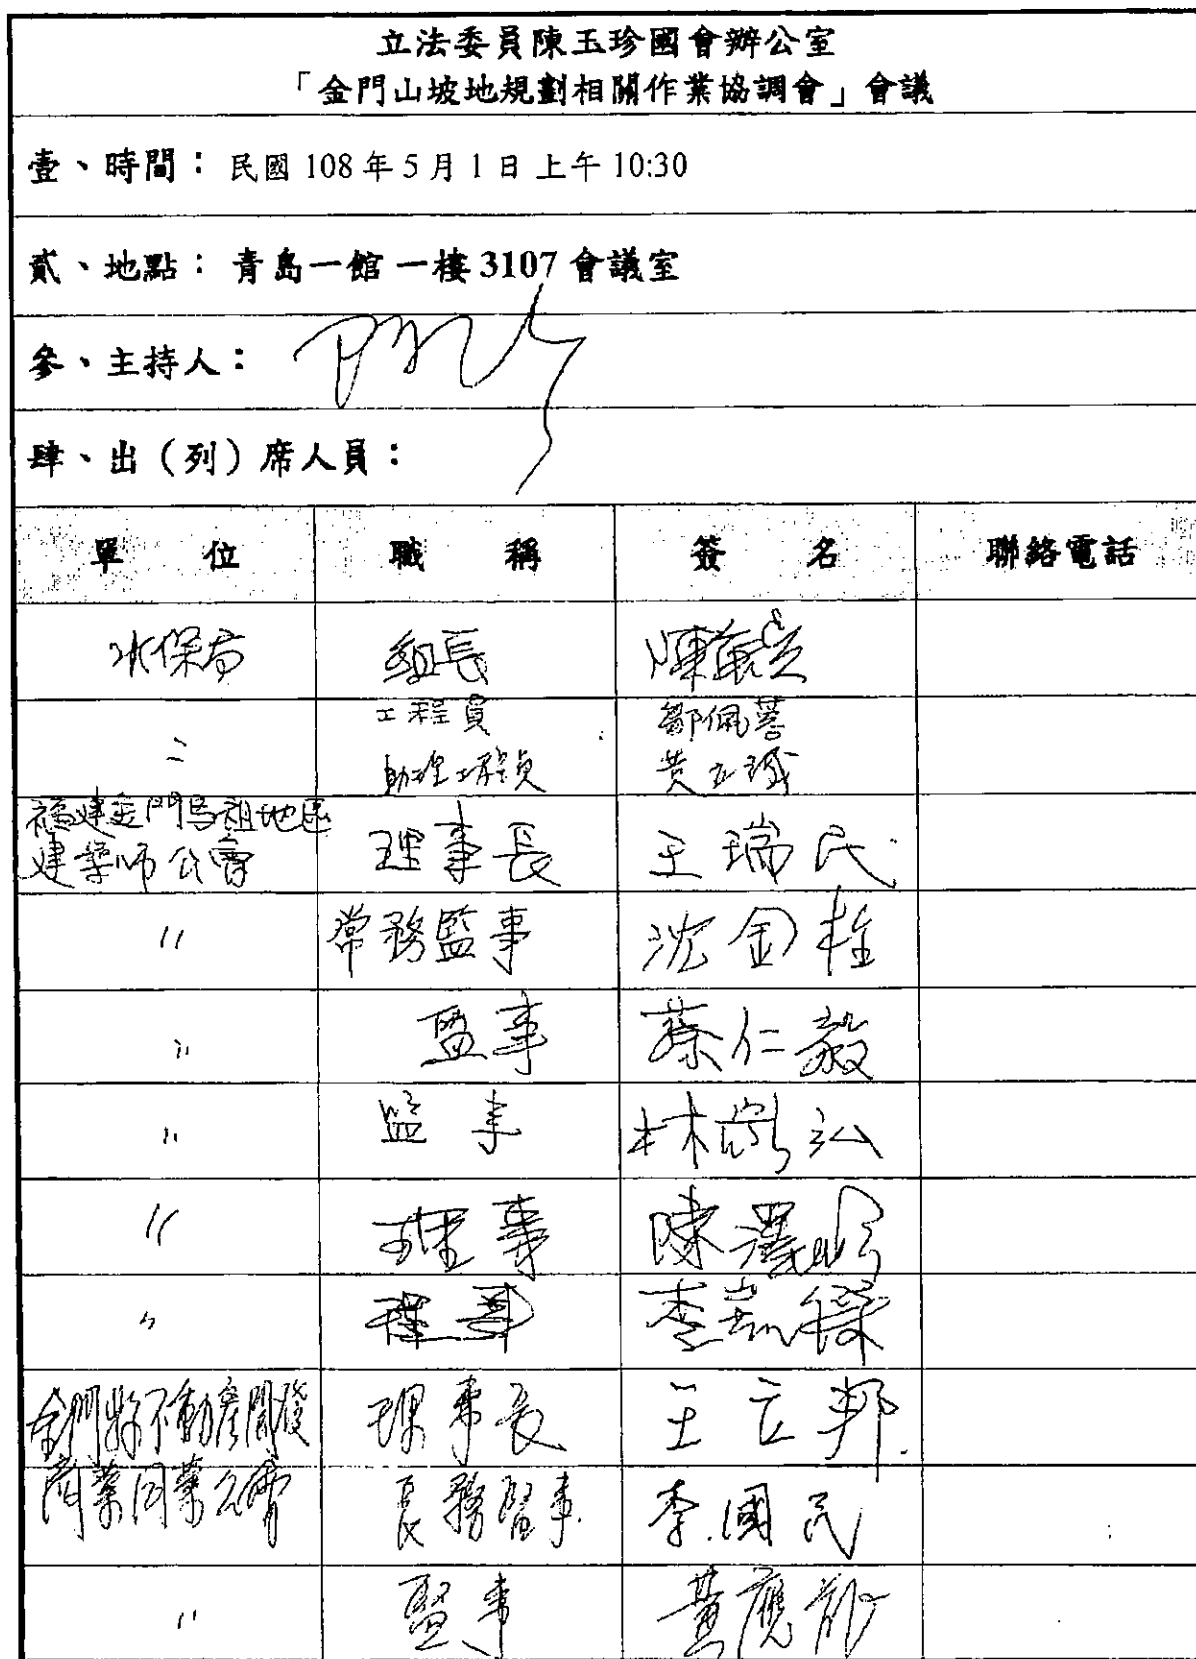 立法委員陳玉珍國會辦公室
「金門山坡地規劃相關作業協調會」會議
壹、時間：民國 108 年 5 月 1 日 上午 10:30
貳、地點：青島一館 一樓 3107 會議室
參、主持人：
肆、出（列）席人員：
單 位 職 稱 簽 名 聯絡電話
水保局 組長 陳
〃 工程員 鄒佩蓉
助理工程員 黃立
福建金門馬祖地區
建築師公會 理事長 王瑞民
〃 常務監事 沈金柱
〃 監事 蔡仁毅
〃 監事 林 弘
〃 理事 陳澤
〃 理事 李
金門縣不動產開發 理事長 王立邦
商業同業公會 常務監事 李國民
〃 監事 黃應